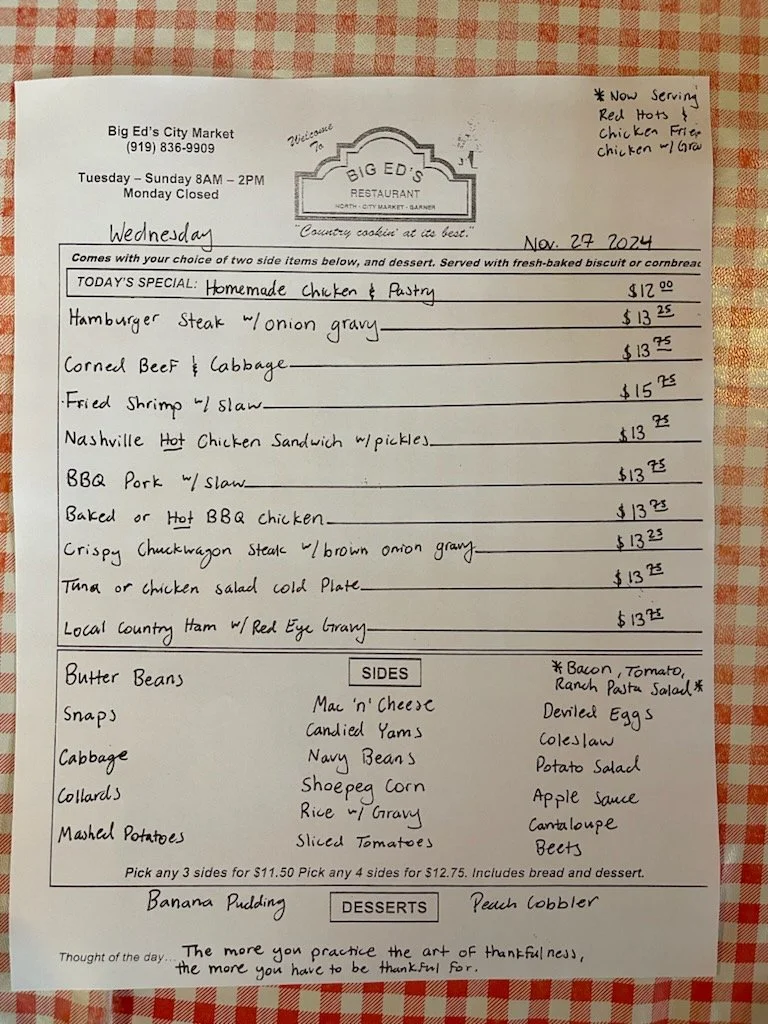 * Now Serving
Red Hots &
Chicken Frie
Chicken w/ Gra
Big Ed's City Market
(919) 836-9909
Tuesday – Sunday 8AM – 2PM
Monday Closed
Welcome
To
BIG ED'S
RESTAURANT
NORTH · CITY MARKET · GARNER
"Country cookin' at its best."
Wednesday
Nov. 27 2024
Comes with your choice of two side items below, and dessert. Served with fresh-baked biscuit or cornbread
TODAY'S SPECIAL: Homemade Chicken & Pastry $12 00
Hamburger Steak w/ onion gravy $13 25
Corned Beef & Cabbage $13 75
Fried Shrimp w/ slaw $15 75
Nashville Hot Chicken Sandwich w/ pickles $13 75
BBQ Pork w/ slaw $13 75
Baked or Hot BBQ chicken $13 75
Crispy Chuckwagon Steak w/ brown onion gravy $13 25
Tuna or chicken salad cold Plate $13 75
Local Country Ham w/ Red Eye Gravy $13 75
SIDES
Butter Beans
Snaps
Cabbage
Collards
Mashed Potatoes
Mac 'n' Cheese
Candied Yams
Navy Beans
Shoepeg Corn
Rice w/ Gravy
Sliced Tomatoes
* Bacon, Tomato,
Ranch Pasta Salad *
Deviled Eggs
Coleslaw
Potato Salad
Apple Sauce
Cantaloupe
Beets
Pick any 3 sides for $11.50 Pick any 4 sides for $12.75. Includes bread and dessert.
Banana Pudding DESSERTS Peach Cobbler
Thought of the day... The more you practice the art of thankfulness,
the more you have to be thankful for.